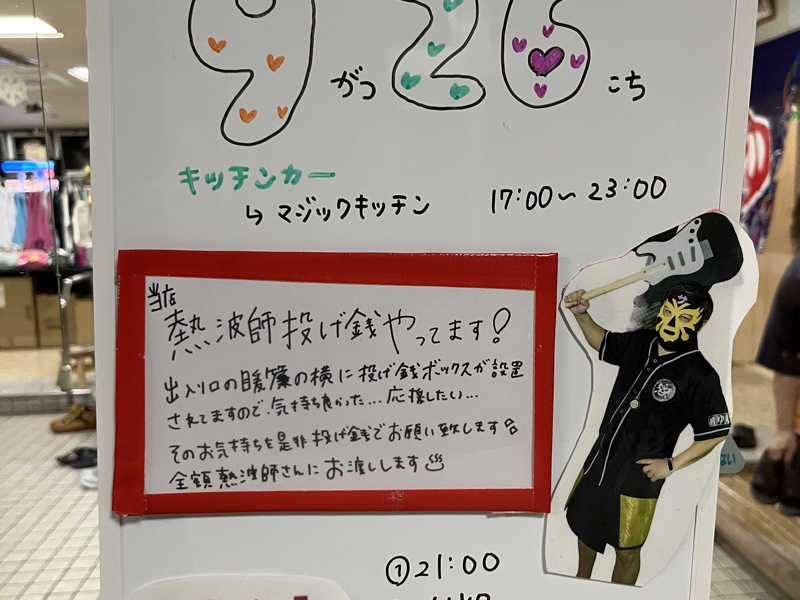 9がつ26にち
キッチンカー
↳マジックキッチン 17:00〜23:00
当店
熱波師投げ銭やってます!
出入り口の暖簾の横に投げ銭ボックスが設置
されてますので、気持ち良かった...応援したい...
そのお気持ちを是非投げ銭でお願い致します
全額熱波師さんにお渡しします♨
ない
①21:00